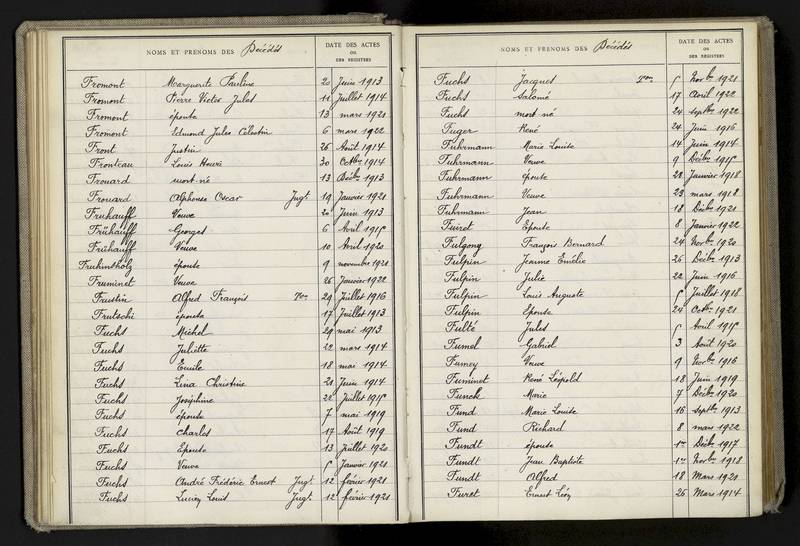 NOMS ET PRÉNOMS DES Décédés
DATE DES ACTES
OU
DES REGISTRES
Fromont Marguerite Pauline 20 Juin 1913
Fromont Pierre Victor Jules 11 Juillet 1914
Fromont épouse 13 mars 1921
Fromont Edmond Jules Célestin 6 mars 1922
Front Justin 26 Août 1914
Fronteau Louis Henri 30 Octbre 1914
Frouard mort-né 13 Décbre 1913
Frouard Alphonse Oscar Jugt 19 Janvier 1921
Fruhauff Veuve 20 Juin 1913
Frühauff Georges 6 Avril 1915
Frühauff Veuve 10 Avril 1920
Fruhinsholz épouse 9 novembre 1921
Fruminet Veuve 26 Janvier 1922
Frustin Alfred François Ton 29 Juillet 1916
Frutschi épouse 17 Juillet 1913
Fuchs Michel 29 mai 1913
Fuchs Juliette 22 mars 1914
Fuchs Emile 18 mai 1914
Fuchs Lina Christine 21 Juin 1914
Fuchs Joséphine 22 Juillet 1915
Fuchs épouse 7 mai 1919
Fuchs Charles 17 Août 1919
Fuchs Epouse 13 Juillet 1920
Fuchs Veuve 5 Janvier 1921
Fuchs André Frédéric Ernest Jugt 12 février 1921
Fuchs Lucien Louis Jugt 12 février 1921
NOMS ET PRÉNOMS DES Décédés
DATE DES ACTES
OU
DES REGISTRES
Fuchs Jacques Ton 5 Novbre 1921
Fuchs Salomé 17 Avril 1922
Fuchs mort-né 24 septbre 1922
Fuger René 24 Juin 1916
Fuhrmann Marie Louise 14 Juin 1914
Fuhrmann Veuve 9 Décbre 1915
Fuhrmann épouse 28 Janvier 1918
Fuhrmann Veuve 23 mars 1918
Fuhrmann Jean 18 Décbre 1921
Fuiret Epouse 8 Janvier 1922
Fulgony François Bernard 24 Novbre 1920
Fulpin Jeanne Emélie 26 Décbre 1913
Fulpin Julie 22 Juin 1916
Fulpin Louis Auguste 5 Juillet 1918
Fulpin Epouse 24 Octbre 1921
Fulté Jules 5 Avril 1915
Fumel Gabriel 3 Août 1920
Fumey Veuve 9 Novbre 1916
Fuminet René Léopold 18 Juin 1919
Funck Marie 7 Décbre 1920
Fund Marie Louise 16 Septbre 1913
Fund Richard 8 mars 1922
Fundt épouse 1er Décbre 1917
Fundt Jean Baptiste 1er Novbre 1918
Fundt Alfred 18 Mars 1921
Furet Ernest Léon 26 Mars 1914